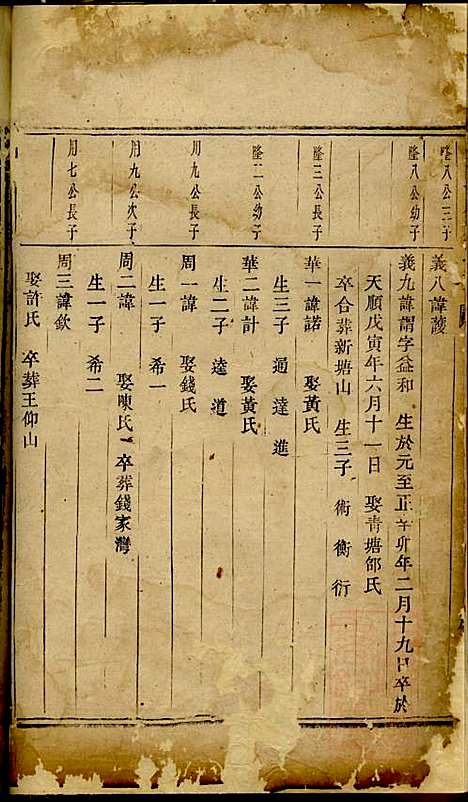 隆八公三子
義八諱護
隆八公幼子
義九諱謂字益和 生於元至正辛卯年二月十九日卒於
天順戊寅年六月十一日 娶青塘邵氏
卒合葬新塘山 生三子 術 衡 衍
隆三公長子
華一諱諾 娶黃氏
生三子 通 達 進
隆二公幼子
華二諱計 娶黃氏
生二子 逵 道
用九公長子
周一諱 娶錢氏
生一子 希一
用九公次子
周二諱 娶陳氏 卒葬錢家灣
生一子 希二
用七公長子
周三諱欽
娶許氏 卒葬王仰山